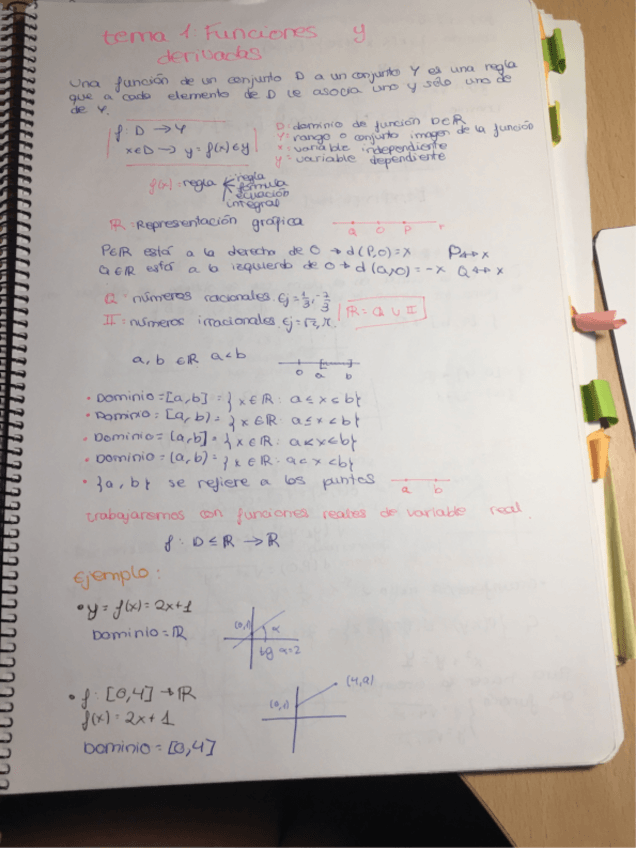 tema 1: Funciones y
derivadas
Una función de un conjunto D a un conjunto Y es una regla
que a cada elemento de D le asocia uno y sólo uno de
de Y.
f: D → Y
x∈D → y = f(x) ∈ Y
D: dominio de función D∈R
Y: rango o conjunto imagen de la función
x: variable independiente
y: variable dependiente
f(x): regla
regla
fórmula
ecuación
integral
ℝ: Representación gráfica
Q O P r
P∈ℝ está a la derecha de O → d(P,O)=x P↔x
Q∈ℝ está a la izquierda de O → d(Q,O)=-x Q↔x
Q: números racionales. Ej = 1/3, -2/3
II: números irracionales. Ej = √2, π.
ℝ = Q ∪ II
a, b ∈ ℝ a<b
0 a b
• Dominio = [a,b] = {x∈ℝ: a≤x≤b}
• Dominio: [a,b) = {x∈ℝ: a≤x<b}
• Dominio = (a,b] = {x∈ℝ: a<x≤b}
• Dominio = (a,b) = {x∈ℝ: a<x<b}
• {a, b} se refiere a los puntos
a b
trabajaremos con funciones reales de variable real.
f: D ≤ ℝ → ℝ
Ejemplo:
• y = f(x) = 2x+1
Dominio = ℝ
(0,1) α
tg α=2
• f: [0,4] → ℝ
f(x) = 2x+1
Dominio = [0,4]
(0,1)
(4,9)